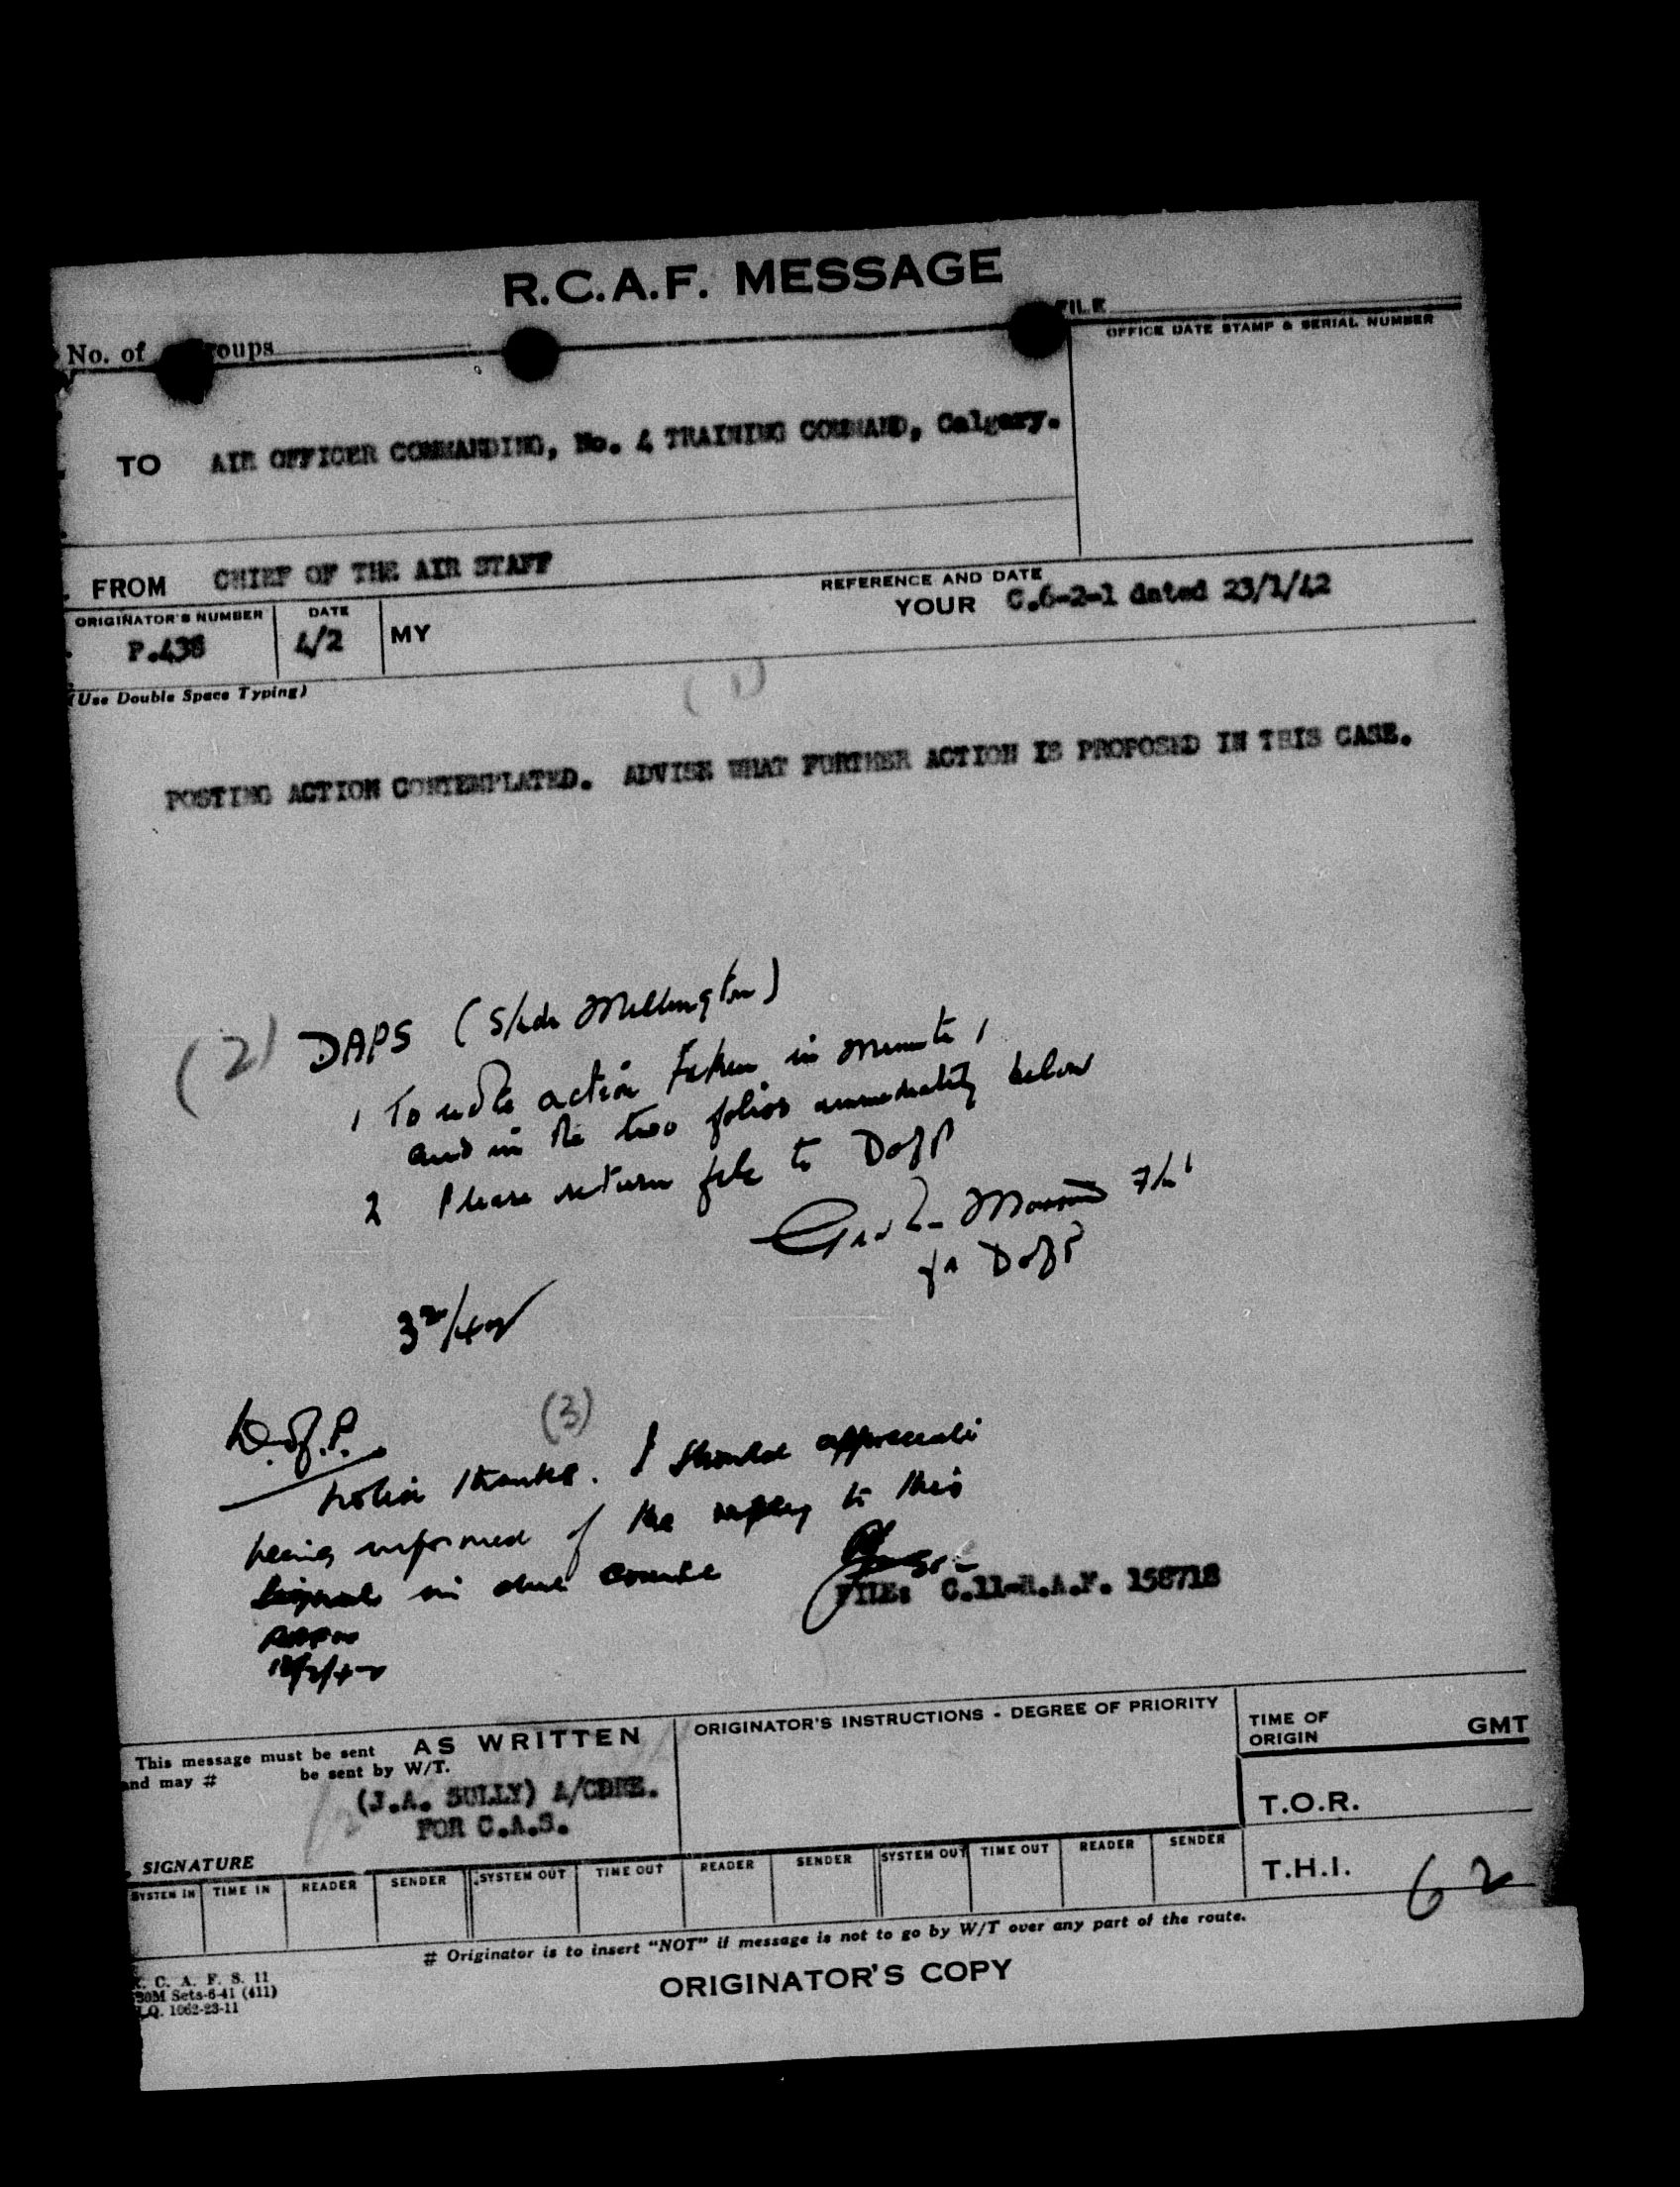 R.C.A.F. MESSAGE
No. of roups
FILE
OFFICE DATE STAMP & SERIAL NUMBER
TO AIR OFFICER COMMANDING, No. 4 TRAINING COMMAND, Calgary.
FROM CHIEF OF THE AIR STAFF
ORIGINATOR'S NUMBER DATE MY REFERENCE AND DATE
P.438 4/2 YOUR C.6-2-1 dated 23/1/42
(Use Double Space Typing)
(1)
POSTING ACTION CONTEMPLATED. ADVISE WHAT FURTHER ACTION IS PROPOSED IN THIS CASE.
(2) DAPS (S/Ldr Millington)
1 To note action taken in Minute 1
and in the two folios immediately below
2 Please return file to DofP
for DofP
D.of.P.
(3)
Noted thanks. I should appreciate
being informed of the reply to this
signal in due course
FILE: C.11-R.A.F. 158718
This message must be sent AS WRITTEN
and may # be sent by W/T.
(J.A. SULLY) A/CDRE.
FOR C.A.S.
SIGNATURE
ORIGINATOR'S INSTRUCTIONS - DEGREE OF PRIORITY
TIME OF
ORIGIN GMT
T.O.R.
T.H.I.
62
SYSTEM IN TIME IN READER SENDER SYSTEM OUT TIME OUT READER SENDER SYSTEM OUT TIME OUT READER SENDER
# Originator is to insert “NOT” if message is not to go by W/T over any part of the route.
C. A. F. S. 11
Sets-6-41 (411)
Q. 1062-23-11
ORIGINATOR'S COPY